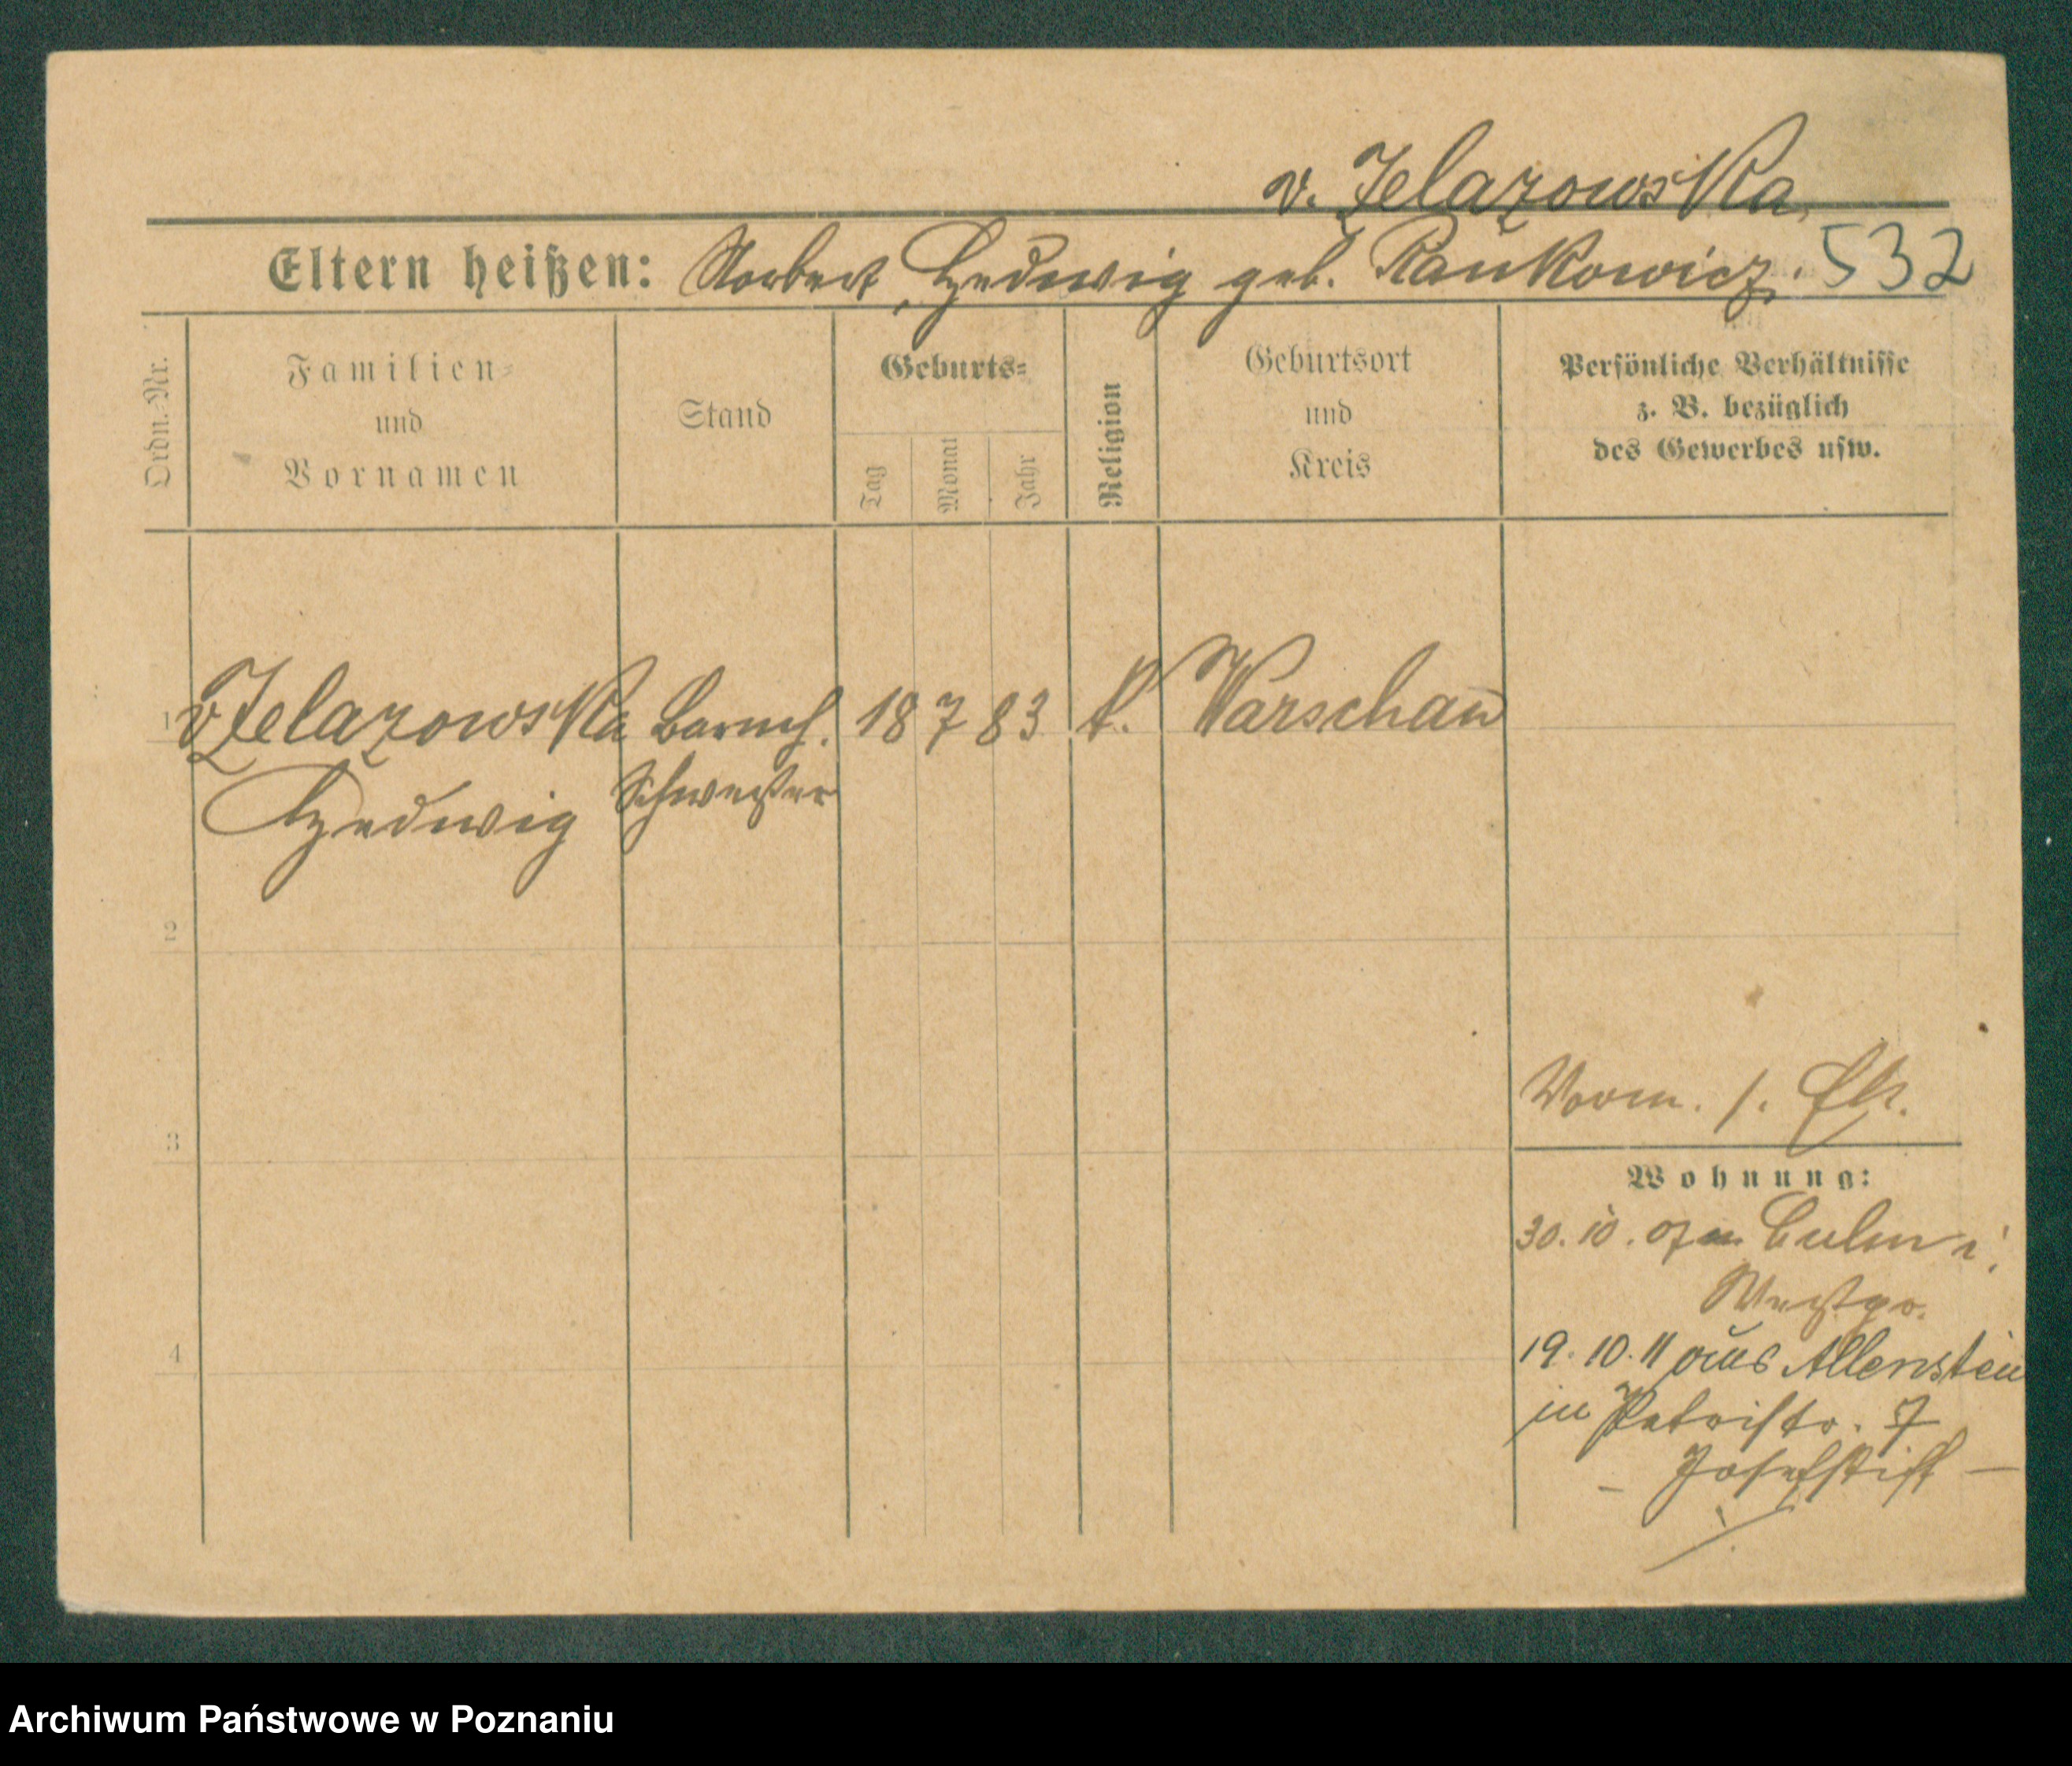 v. Zelazowska,
Eltern heißen: Norbert, Hedwig geb. Rankowicz. 532
Ordn.-Nr.
Familien-
und
Vornamen
Stand
Geburts-
Tag
Monat
Jahr
Religion
Geburtsort
und
Kreis
Persönliche Verhältnisse
z. B. bezüglich
des Gewerbes usw.
1 v Zelazowska Barmh. 18 7 83 k. Warschau
Hedwig Schwester
2
3
4
Vorm.
Wohnung:
30. 10. 07 Culm i.
Westpr.
19. 10. 11 aus Allenstein
in Petristr. 7
– Josefstift –
Archiwum Państwowe w Poznaniu